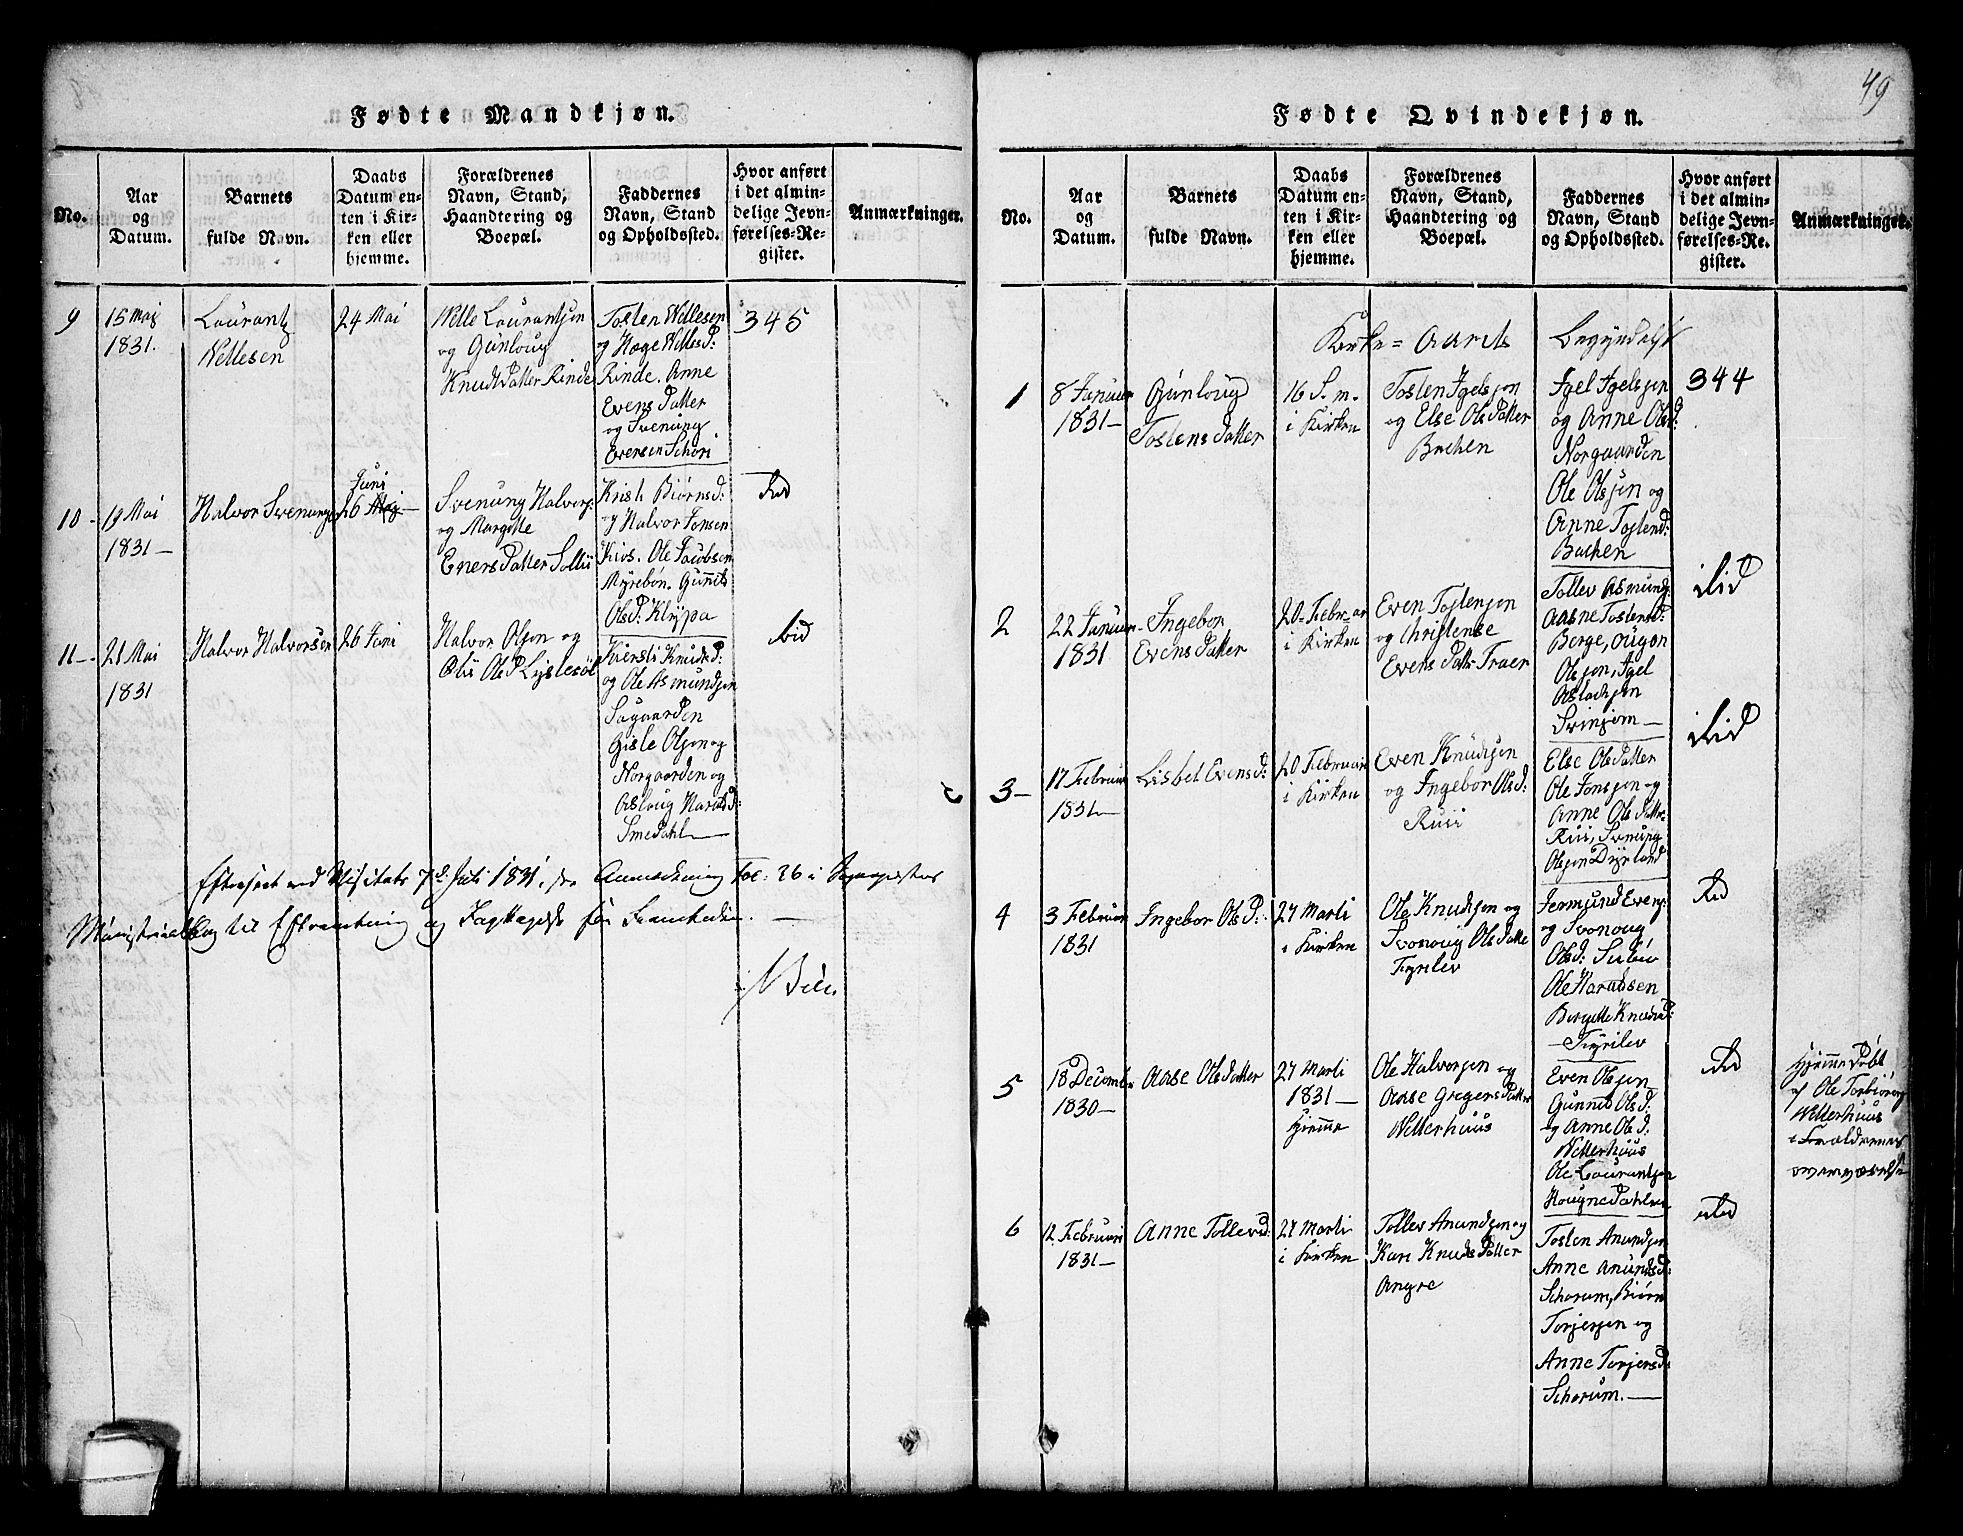 49
Fødte Mandkjøn.
No.
Aar og Datum.
Barnets fulde Navn.
Daabs Datum enten i Kirken eller hjemme.
Forældrenes Navn, Stand, Haandtering og Boepæl.
Faddernes Navn, Stand og Opholdssted.
Hvor anført i det almindelige Jevnførelses-Register.
Anmærkninger.
9
15 Maj
1831.
Laurantz
Nellesen
24 Mai
Nelle Laurantsen
og Gunloug
Knudsdatter Rinde
Tosten Nellesen
og Hæge Nellesd:
Rinde. Anne
Evens Datter
og Svenung
Eversen Schori
345
10 -
19 Mai
1831 —
Halvor Svenungs
Juni
26 Maj —
Svenung Halvors:
og Margette
Eners Datter
Kristi Biørnsd:
og Halvor Jonsen
Kios. Ole Jacobsen
Myrebøn. Gunnild
Olsd: Klypa
ibid
11 —
21 Mai
1831
Halvor Halvorsen
26 Juni
Halvor Olsen og
Kiersti Knudsd:
og Ole Asmundsen
Søgaarden
Gisle Olsen og
Norgaarden og
Aslaug Haraldsd:
Smedahl —
ibid
Efterseet ved Visitats 7de Juli 1831, Anmærkning Fol: 26 i Sognepræstens
Ministerialbog til Efterretning og Iagttagelse for Fremtiden. —
Fødte Qvindekjøn.
No.
Aar og Datum.
Barnets fulde Navn.
Daabs Datum enten i Kirken eller hjemme.
Forældrenes Navn, Stand, Haandtering og Boepæl.
Faddernes Navn, Stand og Opholdssted.
Hvor anført i det almindelige Jevnførelses-Re.gister.
Anmærkninger.
Kirke = Aarets Begyndelse
1
8 Januar
1831 —
Gunloug
Tostens Datter
16 S. m.
i Kirken
Tosten Igelsen
og Else Ols Datter
Bachen
Igel Igelsen
og Anne Olsd:
Norgaarden
Ole Olsen og
Anne Tostensd:
Bachen
344
2
22 Januar
1831
Ingebor
Evens Datter
20 Februar
i Kirken
Even Tostensen
og Christense
Evens Datter Traer
Tollev Asmunds:
Aasne Tostensd:
Berge,
Olsen, Igel
Aslachsen
Svinsom —
ibid
3 —
17 Februar
1831 —
Lisbet Evensd:
20 Februari
i Kirken
Even Knudsen
og Ingebor Olsd:
Ruii
Else Ols Datter
Ole Jonsen og
Anne Ols Datter
Ruii, Svenung
Olsen Dyrland
ibid
4
3 Februar
1831
Ingebor Ols D:
27 Marti
i Kirken
Ole Knudsen og
Svonoug Ols Datter
Fyrilev
Jermund Evens:
og Svonoug
Olsd:
Ole Haraldsen
Bergette Knudsd:
— Fyrilev
ibid
5
18 Decembr
1830 —
Aase Ols Datter
27 Marti
1831 —
hjemme
Ole Halvorsen og
Aase Gregers Datter
Wetterhuus
Even Olsen
Gunnild Olsd:
og Anne Olsd:
Wetterhuus
Ole Laurantsen
Haugne Dahlen
ibid
Hjemme Døbt
af Ole Torbiørns
Wetterhuus
i Forældrenes
overværelse
6
12 Februari
1831 —
Anne Tollevsd:
27 Marti
i Kirken
Tollev Anundsen og
Kari Knuds Datter
Angre
Tosten Anundsen
Anne Anundsd:
Schorum, Biørn
Torjersen og
Anne Torjersd:
Schorum. —
ibid